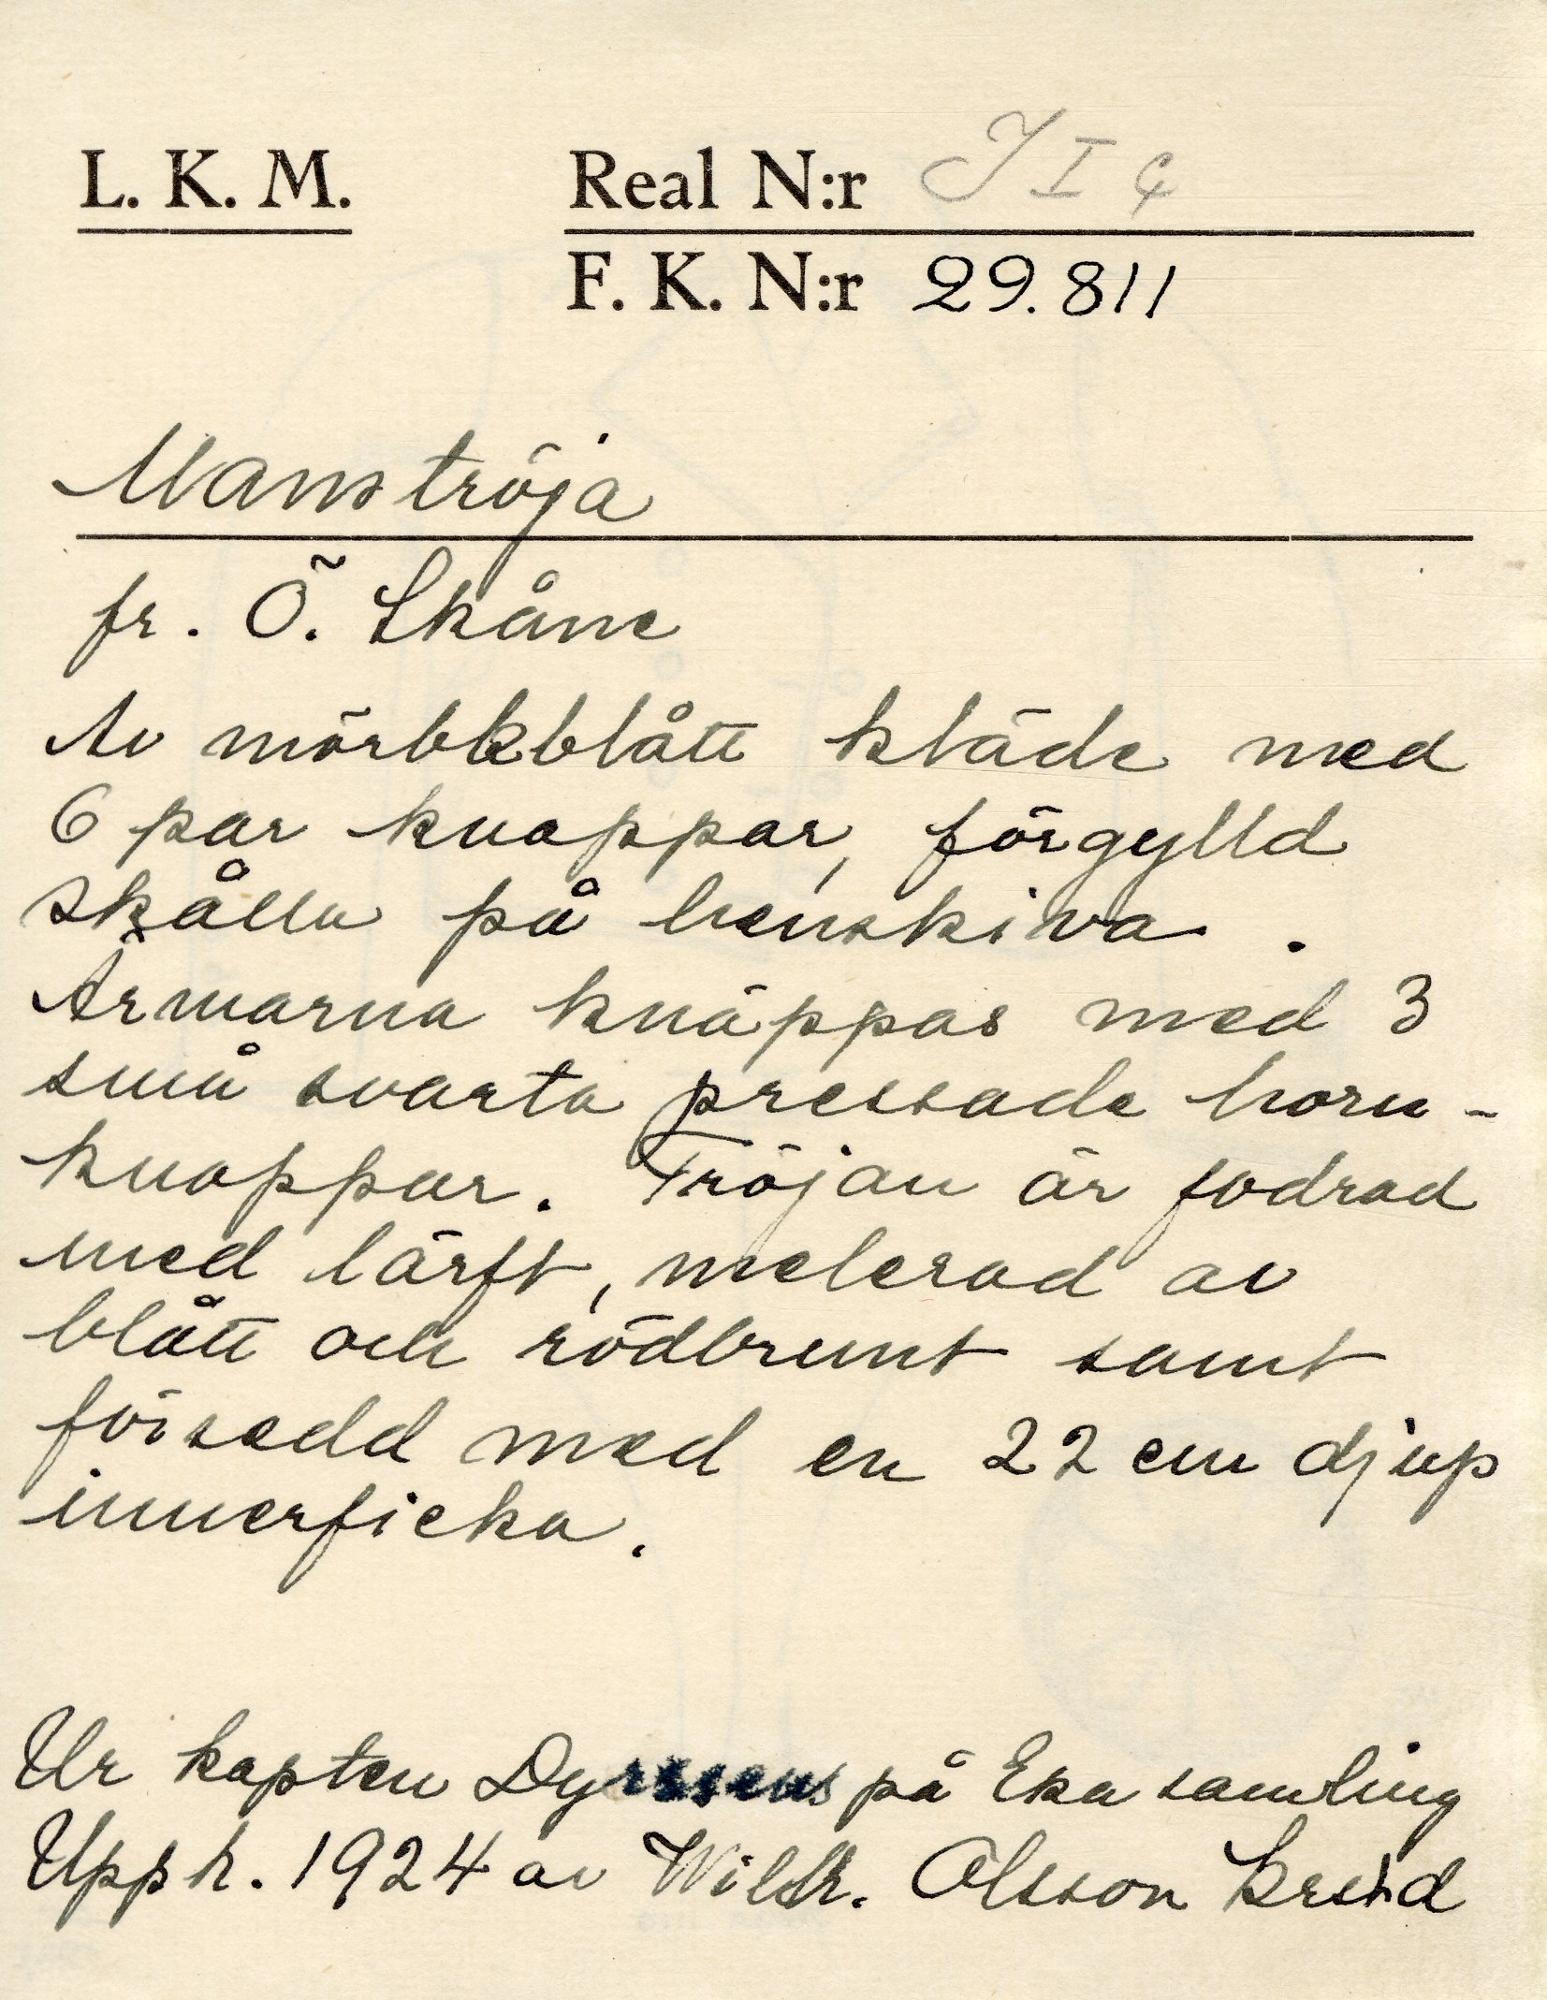 L. K. M.
Real N:r I I
F. K. N:r 29.811
Manströja
fr. Ö. Skåne
Av mörkblått kläde med
6 par knappar, förgylld
skålla på benskiva.
Ärmarna knäppas med 3
små svarta pressade horn-
knappar. Tröjan är fodrad
med lärft, melerad av
blått och rödbrunt samt
försedd med en 22 cm djup
innerficka.
Ur kapten Dyrssens på Eka samling
Upph. 1924 av Wilh. Olsson Krstd